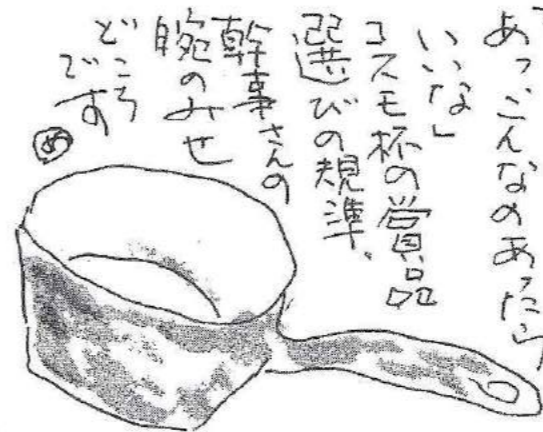 「あっこんなのあったら
いいな」
コスモ杯の賞品
選びの規準。
幹事さんの
腕のみせ
どころ
です
め